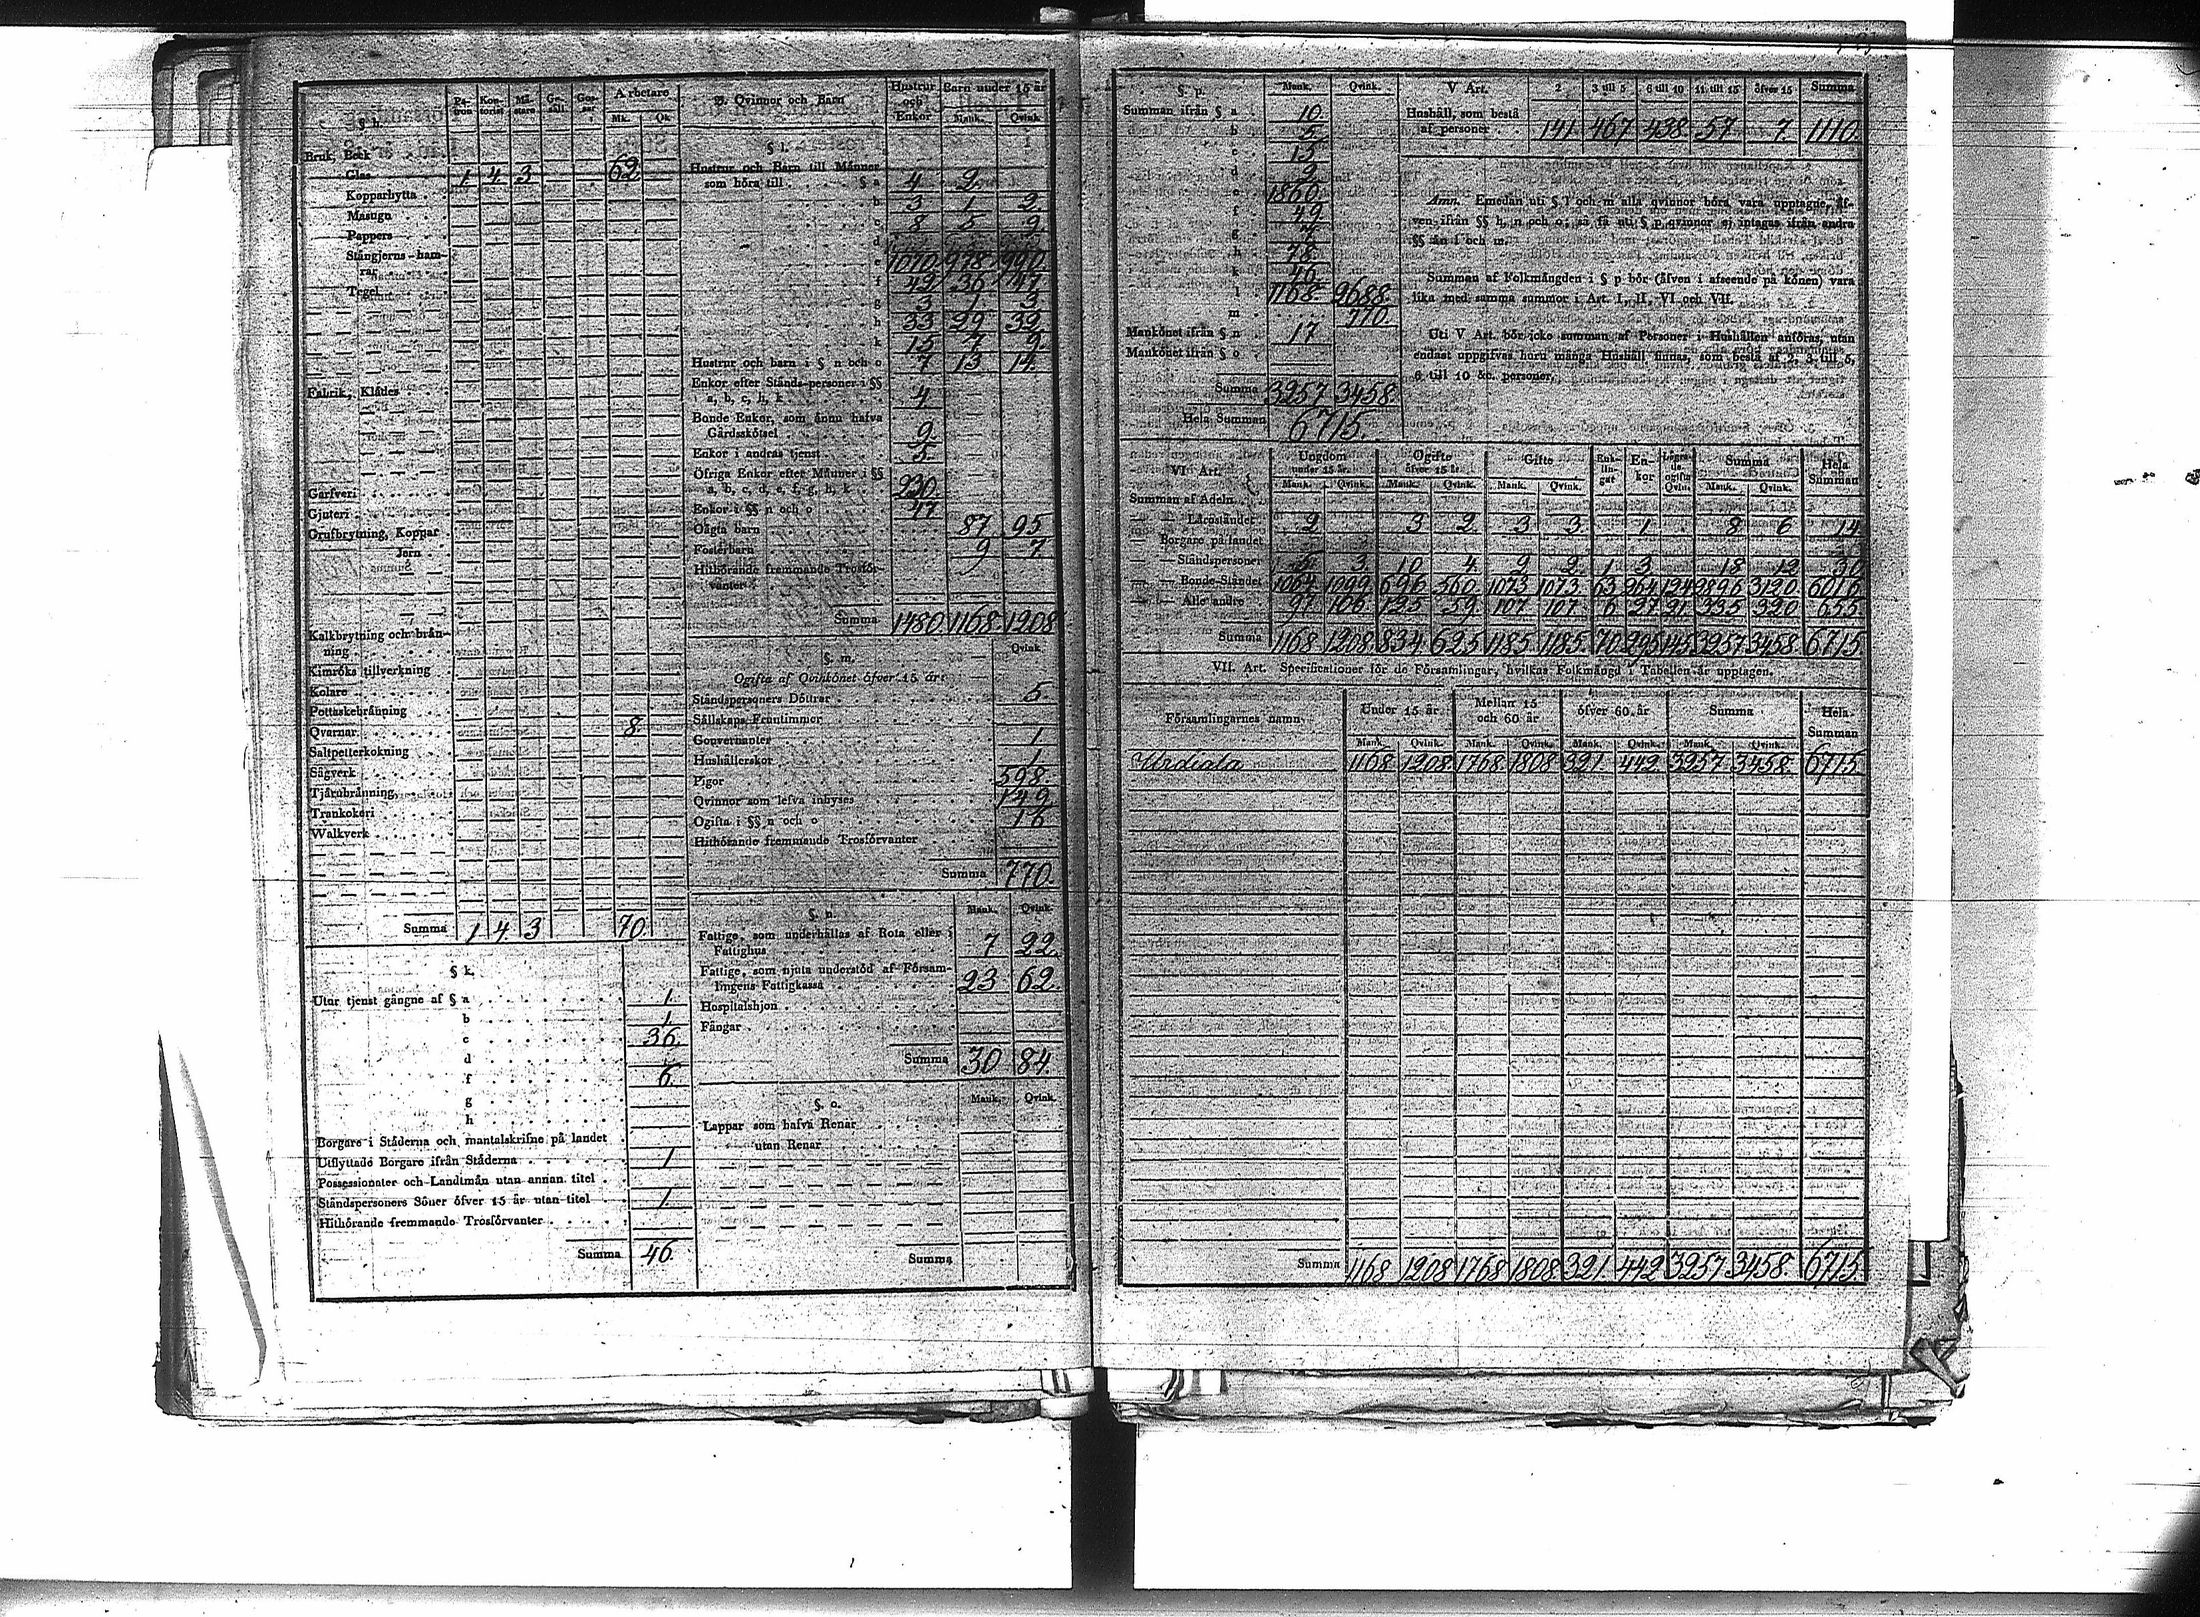 § h.
Pa-
tron
Kon-
torist
Mä-
stare
Ge-
säll
Gos-
sar
Arbetare
Mk. Qk
Bruk, Beck
Glas 1. 4. 3 62
Kopparhytta
Masugn
Pappers
Stångjerns-ham-
rar
Tegel
Fabrik, Klädes
Garfveri
Gjuteri
Grufbrytning, Koppar
Jern
Kalkbrytning och brän-
ning
Kimröks tillverkning
Kolare
Pottaskebränning
Qvarnar 8.
Saltpetterkokning
Sågverk
Tjärubränning
Trankokeri
Walkverk
Summa 1 4. 3 70.
§ k.
Utur tjenst gångne af § a 1.
b 1.
c 36.
d
f 6.
g
h
Borgare i Städerna och mantalskrifne på landet
Utflyttade Borgare ifrån Städerna 1
Possessionater och Landtmän utan annan titel
Ståndspersoners Söner öfver 15 år utan titel 1.
Hithörande fremmande Trosförvanter
Summa 46.
Qvinnor och Barn
Hustrur
och
Enkor
Barn under 15 år
Mank. Qvink
§ l.
Hustrur och Barn till Männer
som höra till § a 4 2.
b 3 1 2.
c 8 5 9.
d
e 1070 978 990.
f 42 36 47
g 3 1. 3
h 33 29 32.
k 15 7 9.
Hustrur och barn i § n och o 7 13 14.
Enkor efter Stånds-personer i §§
a, b, c, h, k 4
Bonde Enkor, som ännu hafva
Gårdsskötsel 9.
Enkor i andras tjenst 5.
Öfriga Enkor efter Männer i §§
a, b, c, d, e, f, g, h, k 230.
Enkor i §§ n och o 47
Oägta barn 87 95
Fosterbarn 9 7.
Hithörande fremmande Trosför-
vanter
Summa 1480 1168 1208
§. m. Qvink
Ogifta af Qvinkönet öfver 15 år:
Ståndspersoners Döttrar 5.
Sällskaps Fruntimmer
Gouvernanter 1
Hushållerskor 1
Pigor 598.
Qvinnor som lefva inhyses 149.
Ogifta i §§ n och o 16
Hithörande fremmande Trosförvanter
Summa 770.
§. n. Mank. Qvink.
Fattige, som underhållas af Rota eller i
Fattighus 7 22.
Fattige, som njuta understöd af Försam-
lingens Fattigkassa 23 62.
Hospitalshjon
Fångar
Summa 30 84.
§. o. Mank. Qvink.
Lappar som hafva Renar
utan Renar
Summa
§. p. Mank. Qvink.
Summan ifrån § a 10.
b 5.
c 15
d 2
e 1860.
f 49.
g 7.
h 78.
k 46.
l 1168. 2688.
m 770.
Mankönet ifrån § n 17
Mankönet ifrån § o
Summa 3257 3458.
Hela Summan 6715.
V Art. 2 3 till 5 6 till 10 11 till 15 öfver 15 Summa
Hushåll, som bestå
af personer 141 467 438. 57 7. 1110.
Anm. Emedan uti § l och m alla qvinnor böra vara upptagne, äf-
ven ifrån §§ h, n och o; så få uti § p qvinnor ej intagas ifrån andra
§§ än l och m.
Summan af Folkmängden i § p bör (äfven i afseende på könen) vara
lika med samma summor i Art. I, II, VI och VII.
Uti V Art. bör icke summan af Personer i Hushållen anföras, utan
endast uppgifvas huru många Hushåll finnas, som bestå af 2, 3 till 5,
6 till 10 &c. personer.
VI Art.
Ungdom
under 15 år.
Ogifte
öfver 15 år.
Gifte
Enk-
lin-
gar
En-
kor
Lägra-
de
ogifta
Qvin.
Summa
Hela
Summan
Mank. Qvink. Mank. Qvink. Mank. Qvink. Mank. Qvink.
Summan af Adeln
— — Läroståndet 2 3 2. 3 3 1 8 6 14
— Borgare på landet
— — Ståndspersoner 5 3 10 4. 9 2. 1 3 18 12 30
— — Bonde-Ståndet 1064 1099 696 560 1073 1073. 63 264 124 2896 3120 6016
— — Alle andre 97 106 125 59. 107 107 6 27 21 335 320 655
Summa 1168 1208. 834 625 1185 1185. 70 295 145 3257 3458. 6715
VII. Art. Specificationer för de Församlingar, hvilkas Folkmängd i Tabellen är upptagen.
Församlingarnes namn.
Under 15 år.
Mellan 15
och 60 år
öfver 60 år
Summa
Hela
Summan
Mank. Qvink. Mank. Qvink. Mank. Qvink. Mank. Qvink.
Urdiala 1168 1208. 1768 1808 321. 442. 3257 3458. 6715
Summa 1168 1208 1768 1808. 321 442 3257 3458. 6715.